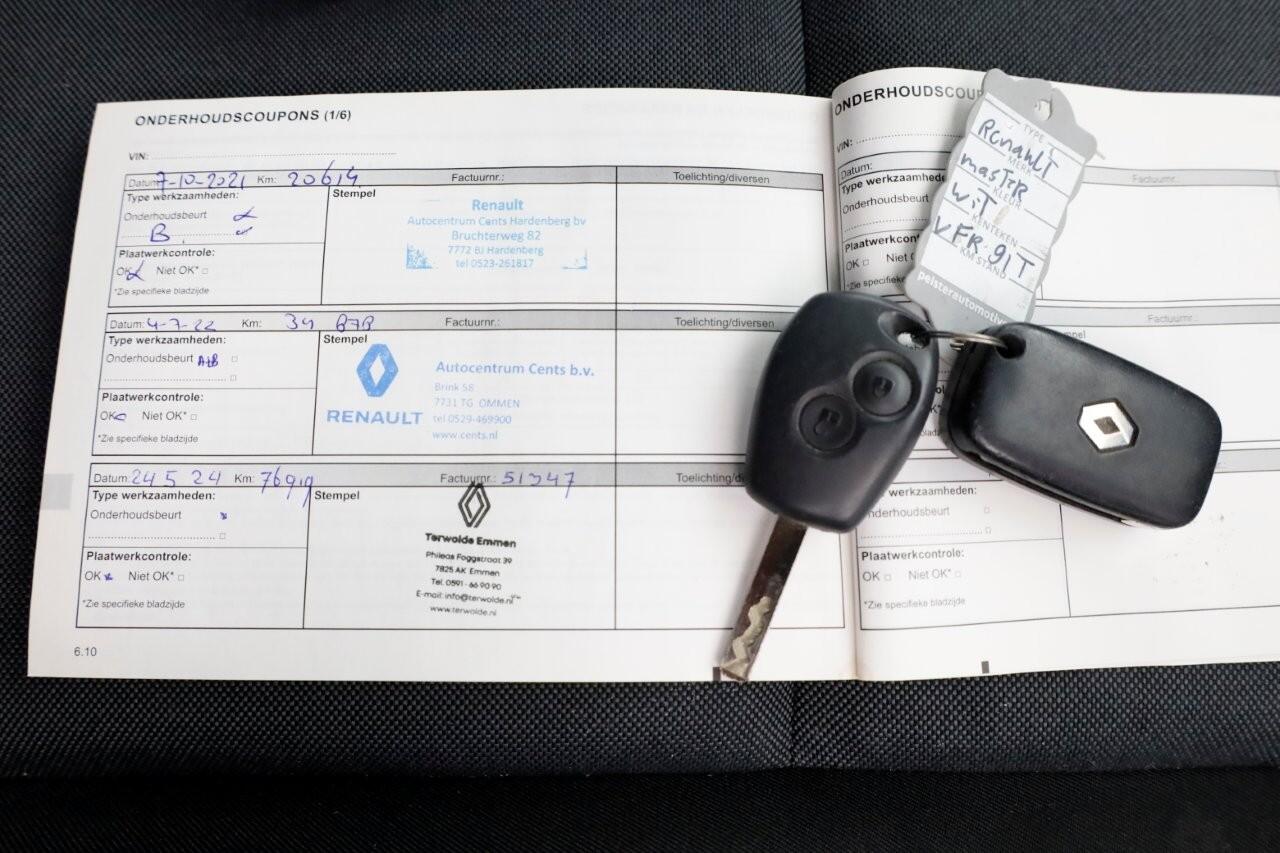 ONDERHOUDSCOUPONS (1/6)
VIN:
Datum: 7-10-2021 Km: 20614 Factuurnr.: Toelichting/diversen
Type werkzaamheden: Stempel
Onderhoudsbeurt
B
Plaatwerkcontrole:
OK Niet OK*
*Zie specifieke bladzijde
Renault
Autocentrum Cents Hardenberg bv
Bruchterweg 82
7772 BJ Hardenberg
tel 0523-261817
Datum: 4-7-22 Km: 34 Factuurnr.: Toelichting/diversen
Type werkzaamheden: Stempel
Onderhoudsbeurt A+B
Plaatwerkcontrole:
OK Niet OK*
*Zie specifieke bladzijde
RENAULT
Autocentrum Cents b.v.
Brink 58
7731 TG OMMEN
tel 0529-469900
www.cents.nl
Datum: 24 5 24 Km: 76919 Factuurnr.: 51347 Toelichting/di
Type werkzaamheden: Stempel
Onderhoudsbeurt
Plaatwerkcontrole:
OK Niet OK*
*Zie specifieke bladzijde
Terwolde Emmen
Phileas Foggstraat 39
7825 AK Emmen
Tel. 0591-66 90 90
E-mail: info@terwolde.nl
www.terwolde.nl
6.10
ONDERHOUDSCOUP
VIN:
Datum: Factuurnr.
Type werkzaamhede
Onderhoudsbeurt
Plaatwerkcontr
OK Niet
*Zie specifieke
Factuurnr.:
werkzaamheden:
nderhoudsbeurt
Plaatwerkcontrole:
OK Niet OK*
*Zie specifieke bladzijde
TYPE
RenaulT
MERK
masTer
KLEUR
wiT
KENTEKEN
VFR.91T
KM STAND
pelsterautomotive